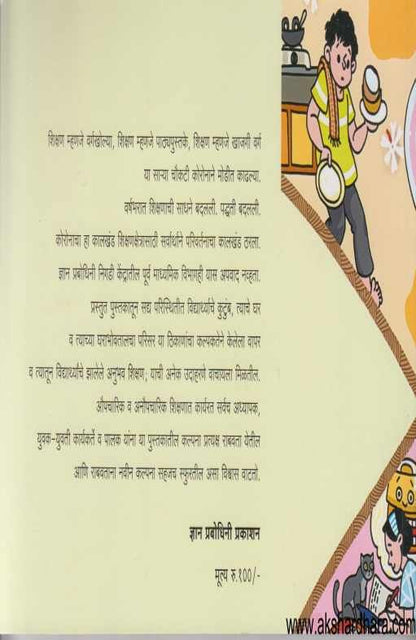 शिक्षण म्हणजे वर्गखोल्या, शिक्षण म्हणजे पाठ्यपुस्तके, शिक्षण म्हणजे खाजगी वर्ग
या साऱ्या चौकटी कोरोनाने मोडीत काढल्या.
वर्षभरात शिक्षणाची साधने बदलली. पद्धती बदलली.
कोरोनाचा हा कालखंड शिक्षणक्षेत्रासाठी सर्वार्थाने परिवर्तनाचा कालखंड ठरला.
ज्ञान प्रबोधिनी निगडी केंद्रातील पूर्व माध्यमिक विभागही यास अपवाद नव्हता.
प्रस्तुत पुस्तकातून सद्य परिस्थितीत विद्यार्थ्यांचे कुटुंब, त्याचे घर
व त्याच्या घराभोवतालचा परिसर या ठिकाणांचा कल्पकतेने केलेला वापर
व त्यातून विद्यार्थ्यांचे झालेले अनुभव शिक्षण; याची अनेक उदाहरणे वाचायला मिळतील.
औपचारिक व अनौपचारिक शिक्षणात कार्यरत सर्वच अध्यापक,
युवक-युवती कार्यकर्ते व पालक यांना या पुस्तकातील कल्पना प्रत्यक्ष राबवता येतील
आणि राबवताना नवीन कल्पना सहजच स्फुरतील असा विश्वास वाटतो.
ज्ञान प्रबोधिनी प्रकाशन
मूल्य रु.१००/-
www.akshardhara.com